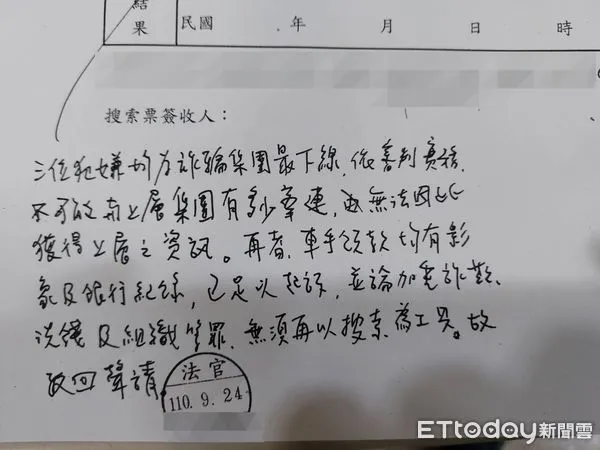 結
果
民國 年 月 日 時
搜索票簽收人：
三位犯嫌均為詐騙集團最下線，依審判實務，
不可能與上層集團有多少牽連，也無法因此
獲得上層之資訊。再者，車手領款均有影
象及銀行紀錄，已足以起訴，並論加重詐欺、
洗錢及組織等罪，無須再以搜索為工具。故
駁回聲請
法官
110.9.24
ETtoday新聞雲